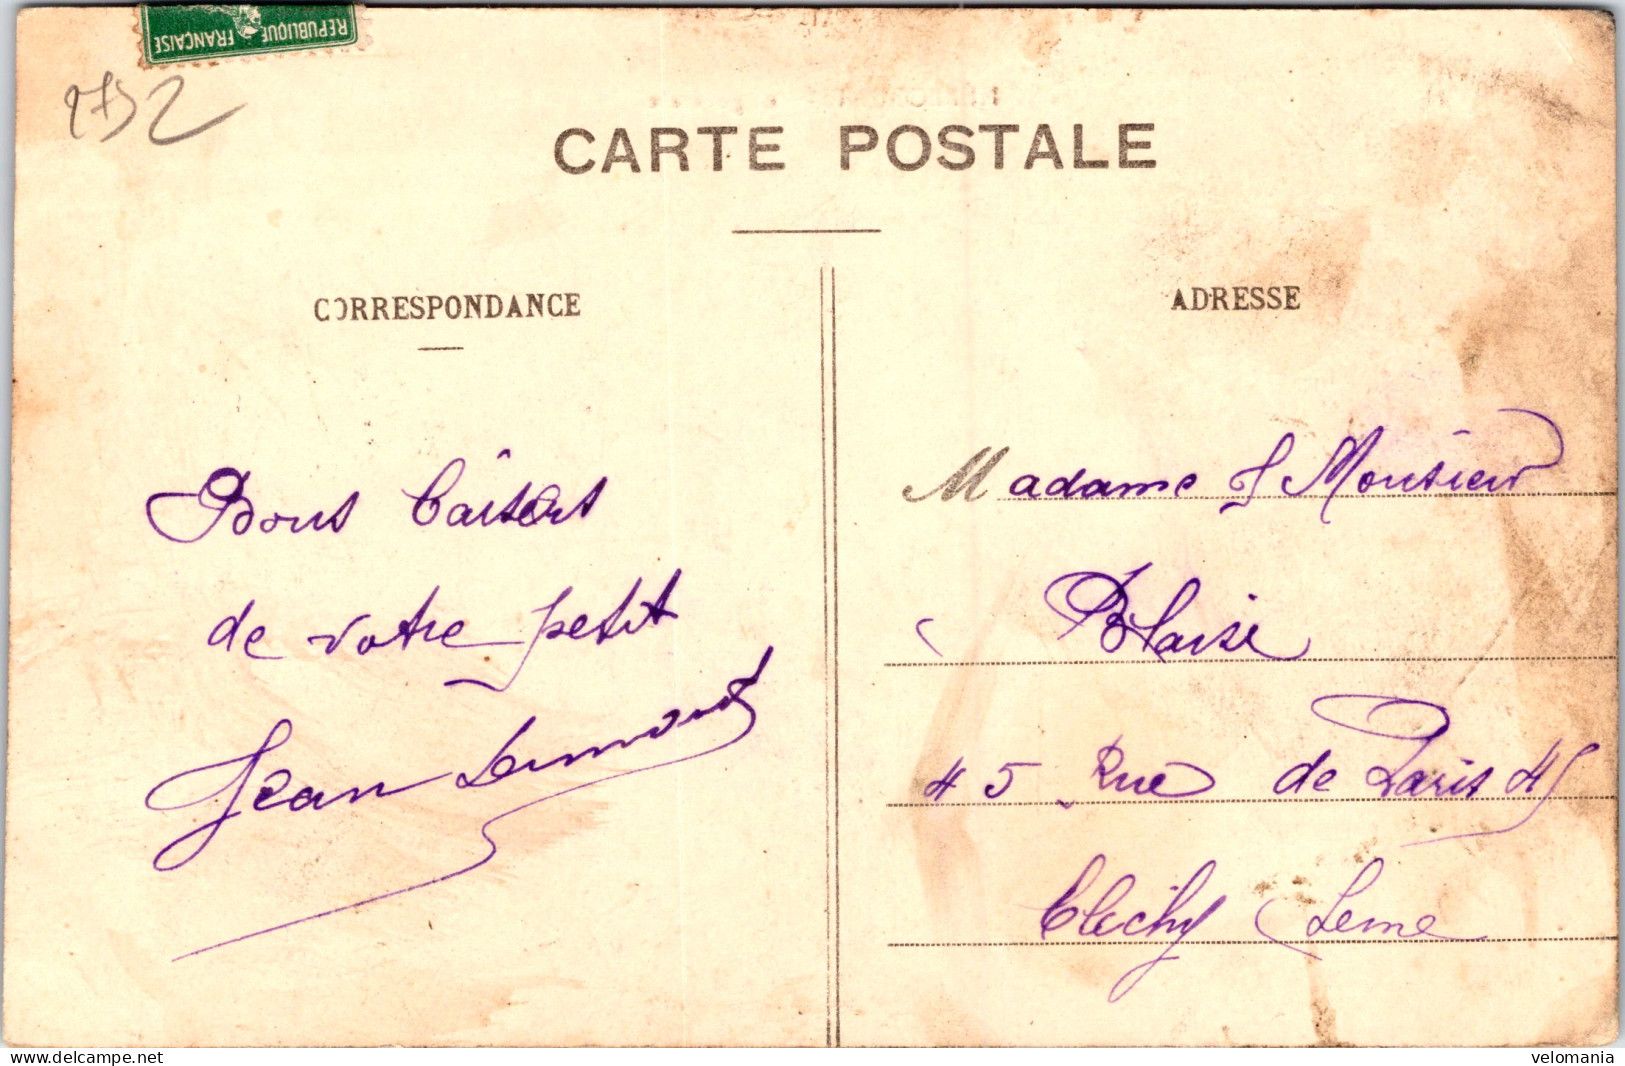 REPUBLIQUE FRANÇAISE
2752
CARTE POSTALE
CORRESPONDANCE
ADRESSE
Bons baisers
de votre petit
Jean
Madame & Monsieur
Blaise
45 Rue de Paris 45
Clichy Seine
delcampe.net
velomania